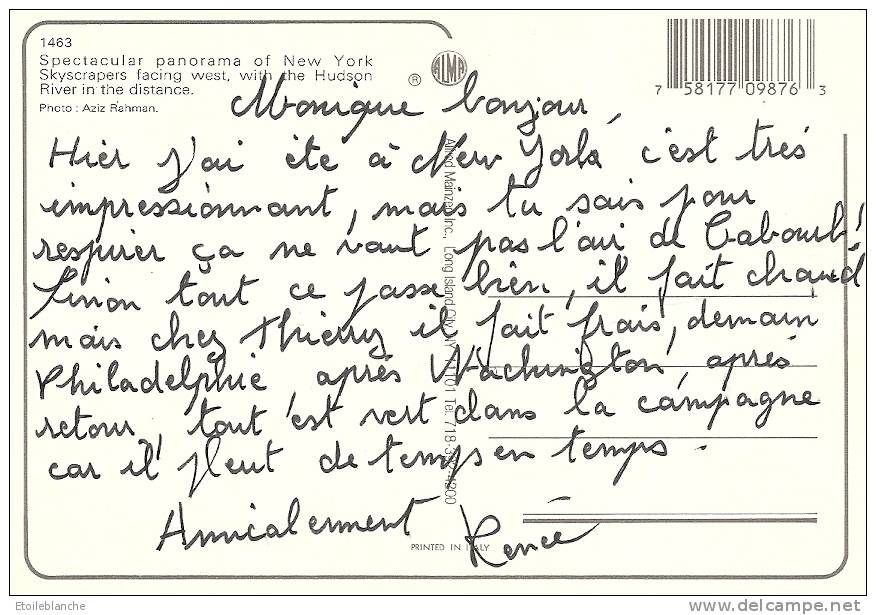 1463
Spectacular panorama of New York
Skyscrapers facing west, with the Hudson
River in the distance.
Photo : Aziz Rahman.
®
ALMA
7 58177 09876 3
Monique bonjour,
Hier j'ai été à New York c'est très
impressionnant, mais tu sais pour
respirer ça ne vaut pas l'air de Cabourg!
Sinon tout ce passe bien, il fait chaud
mais chez Thierry il fait frais, demain
Philadelphie après Wachington, après
retour, tout est vert dans la campagne
car il pleut de temps en temps.
Amicalement Renée
Alfred Mainzer, Inc., Long Island City, NY 11101 Tel. 718-392-4200
PRINTED IN ITALY
Etoileblanche
http://www.delcampe.net